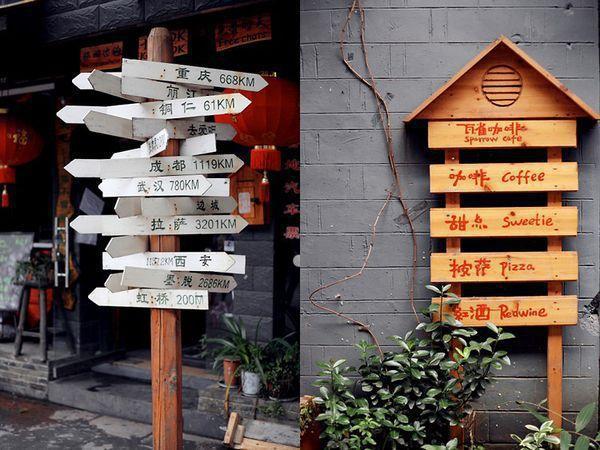 重庆 668KM
丽江
铜仁 61KM
成都 1119KM
武汉 780KM
边城
拉萨 3201KM
西安
墨脱 2686KM
虹桥 200M
Free chats
雀咖啡
Sparrow cafe
咖啡 Coffee
甜点 Sweetie
披萨 Pizza
紅酒 Redwine